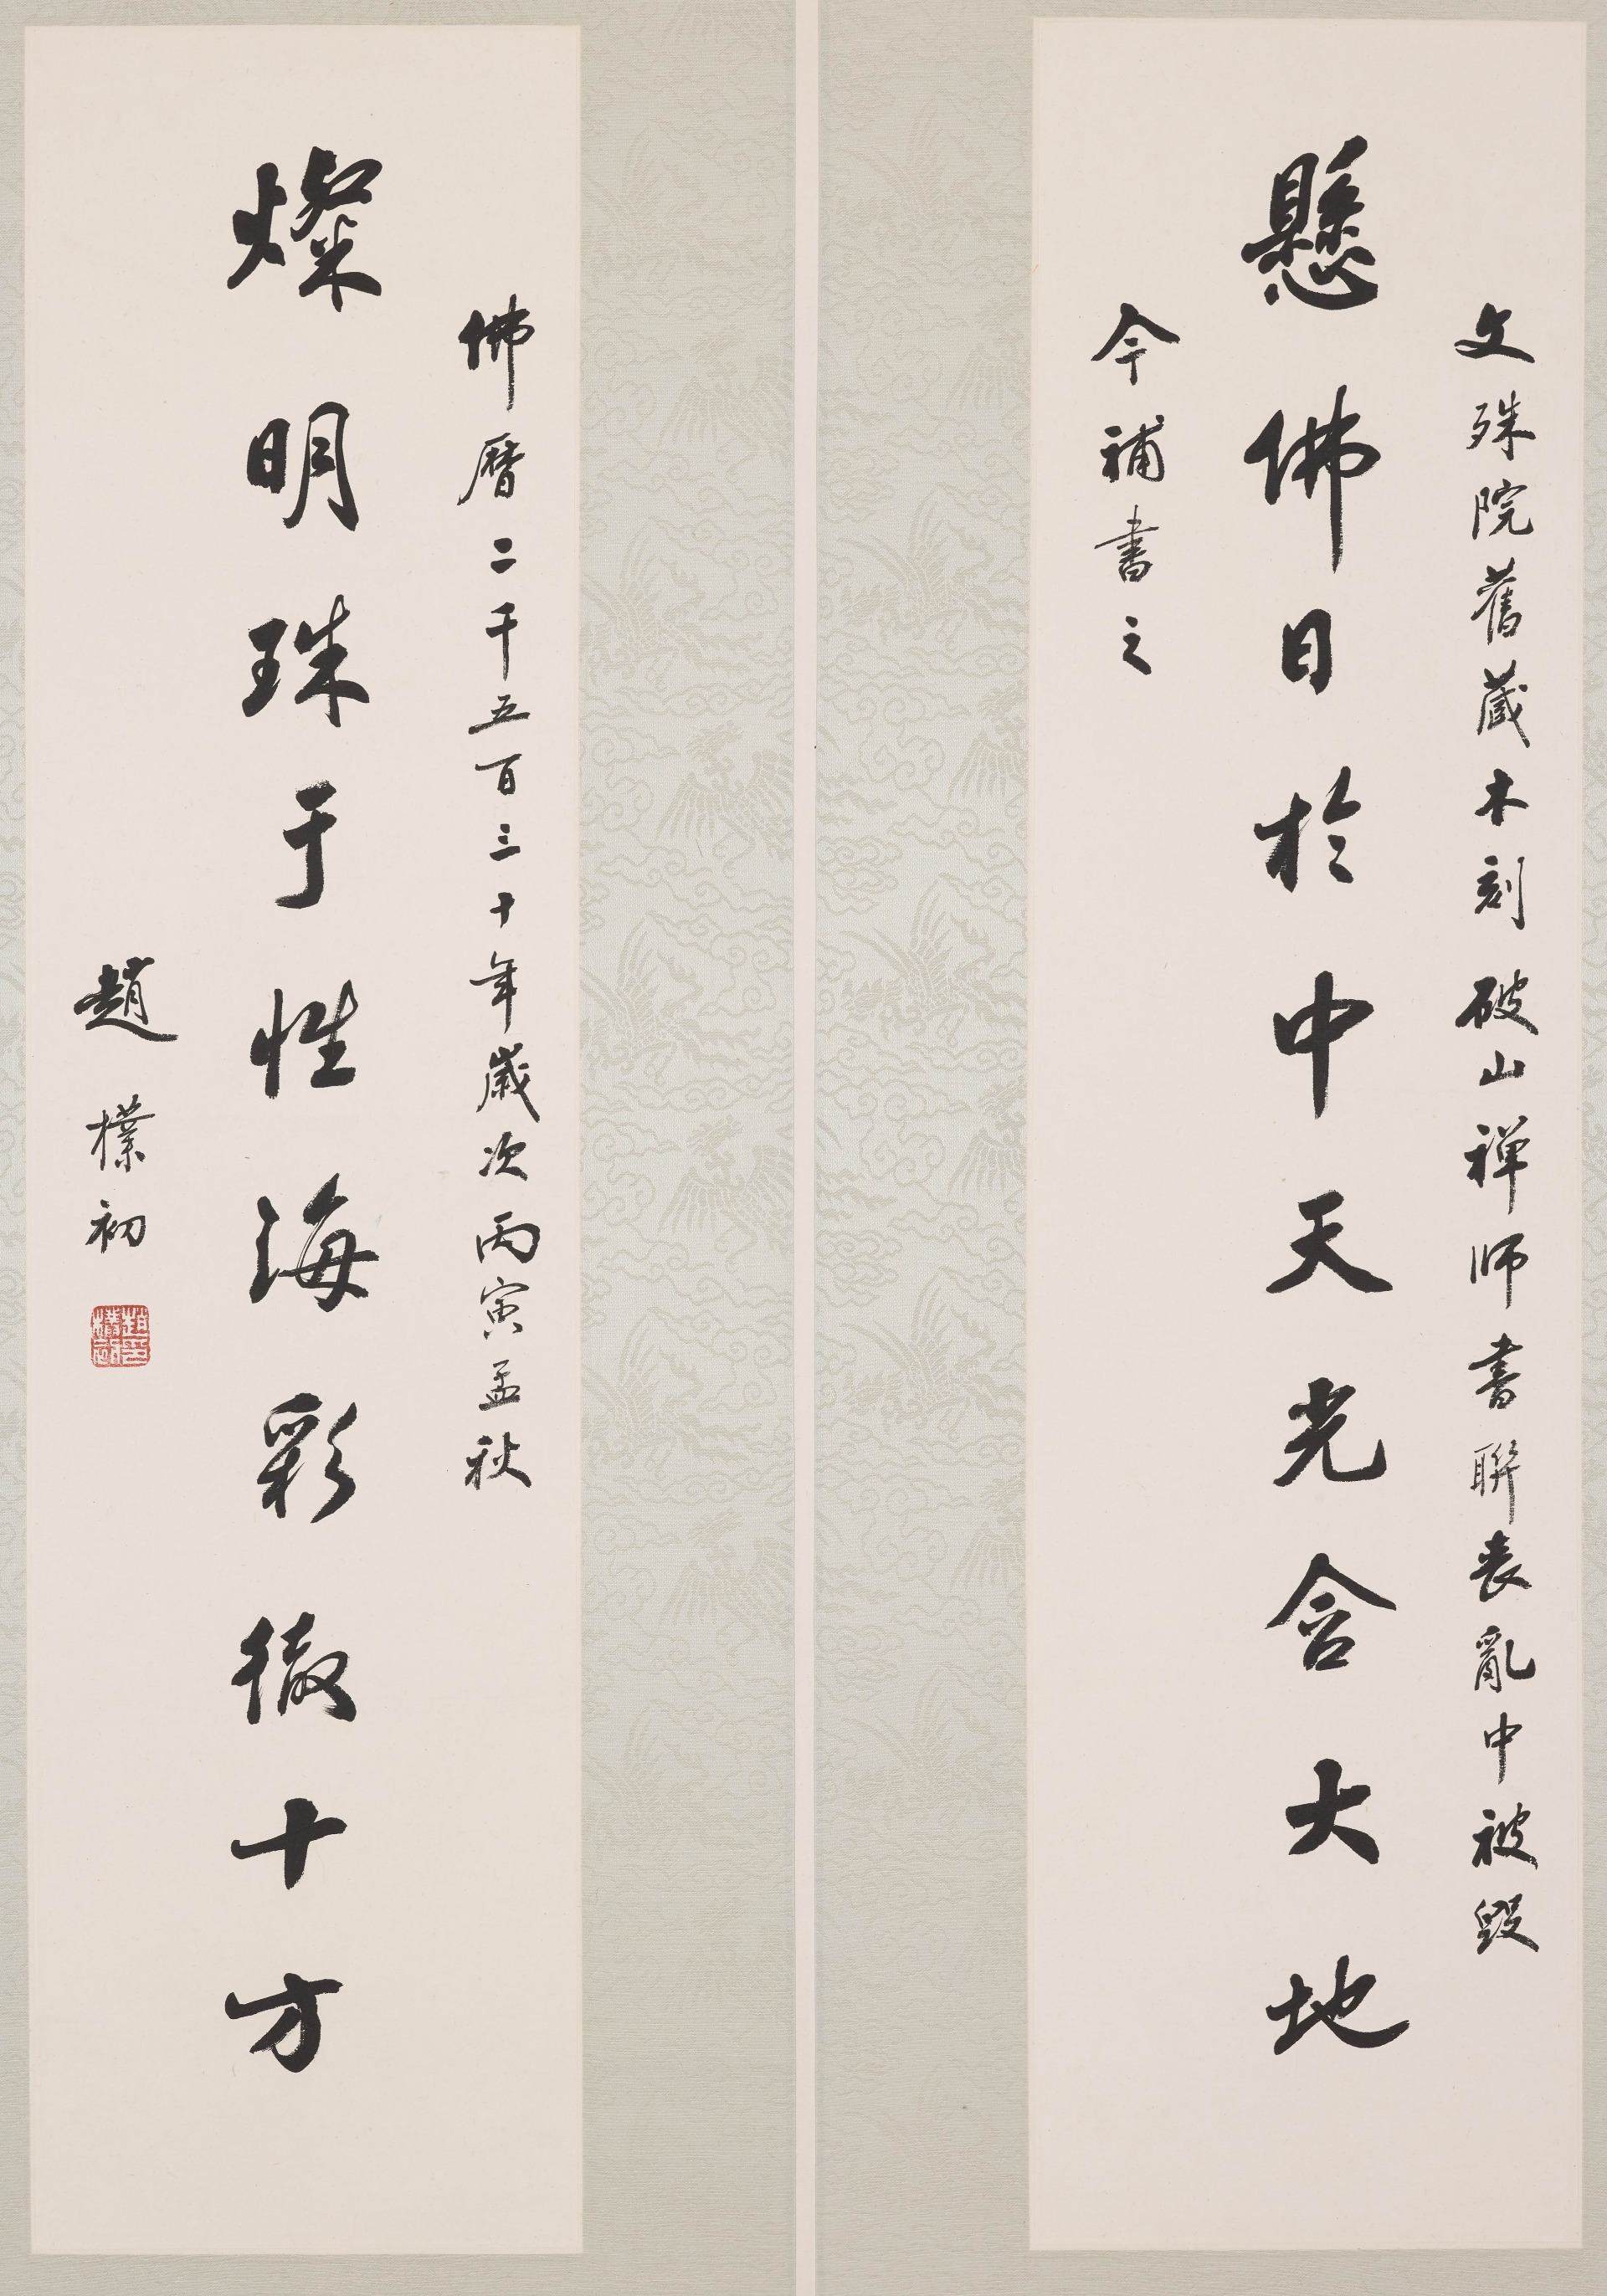 文殊院舊藏木刻破山禅師書聯丧亂中被毀
懸佛日於中天光含大地
今補書之
佛曆二千五百三十年歲次丙寅孟秋
燦明珠于性海彩徹十方
趙樸初
趙樸初印